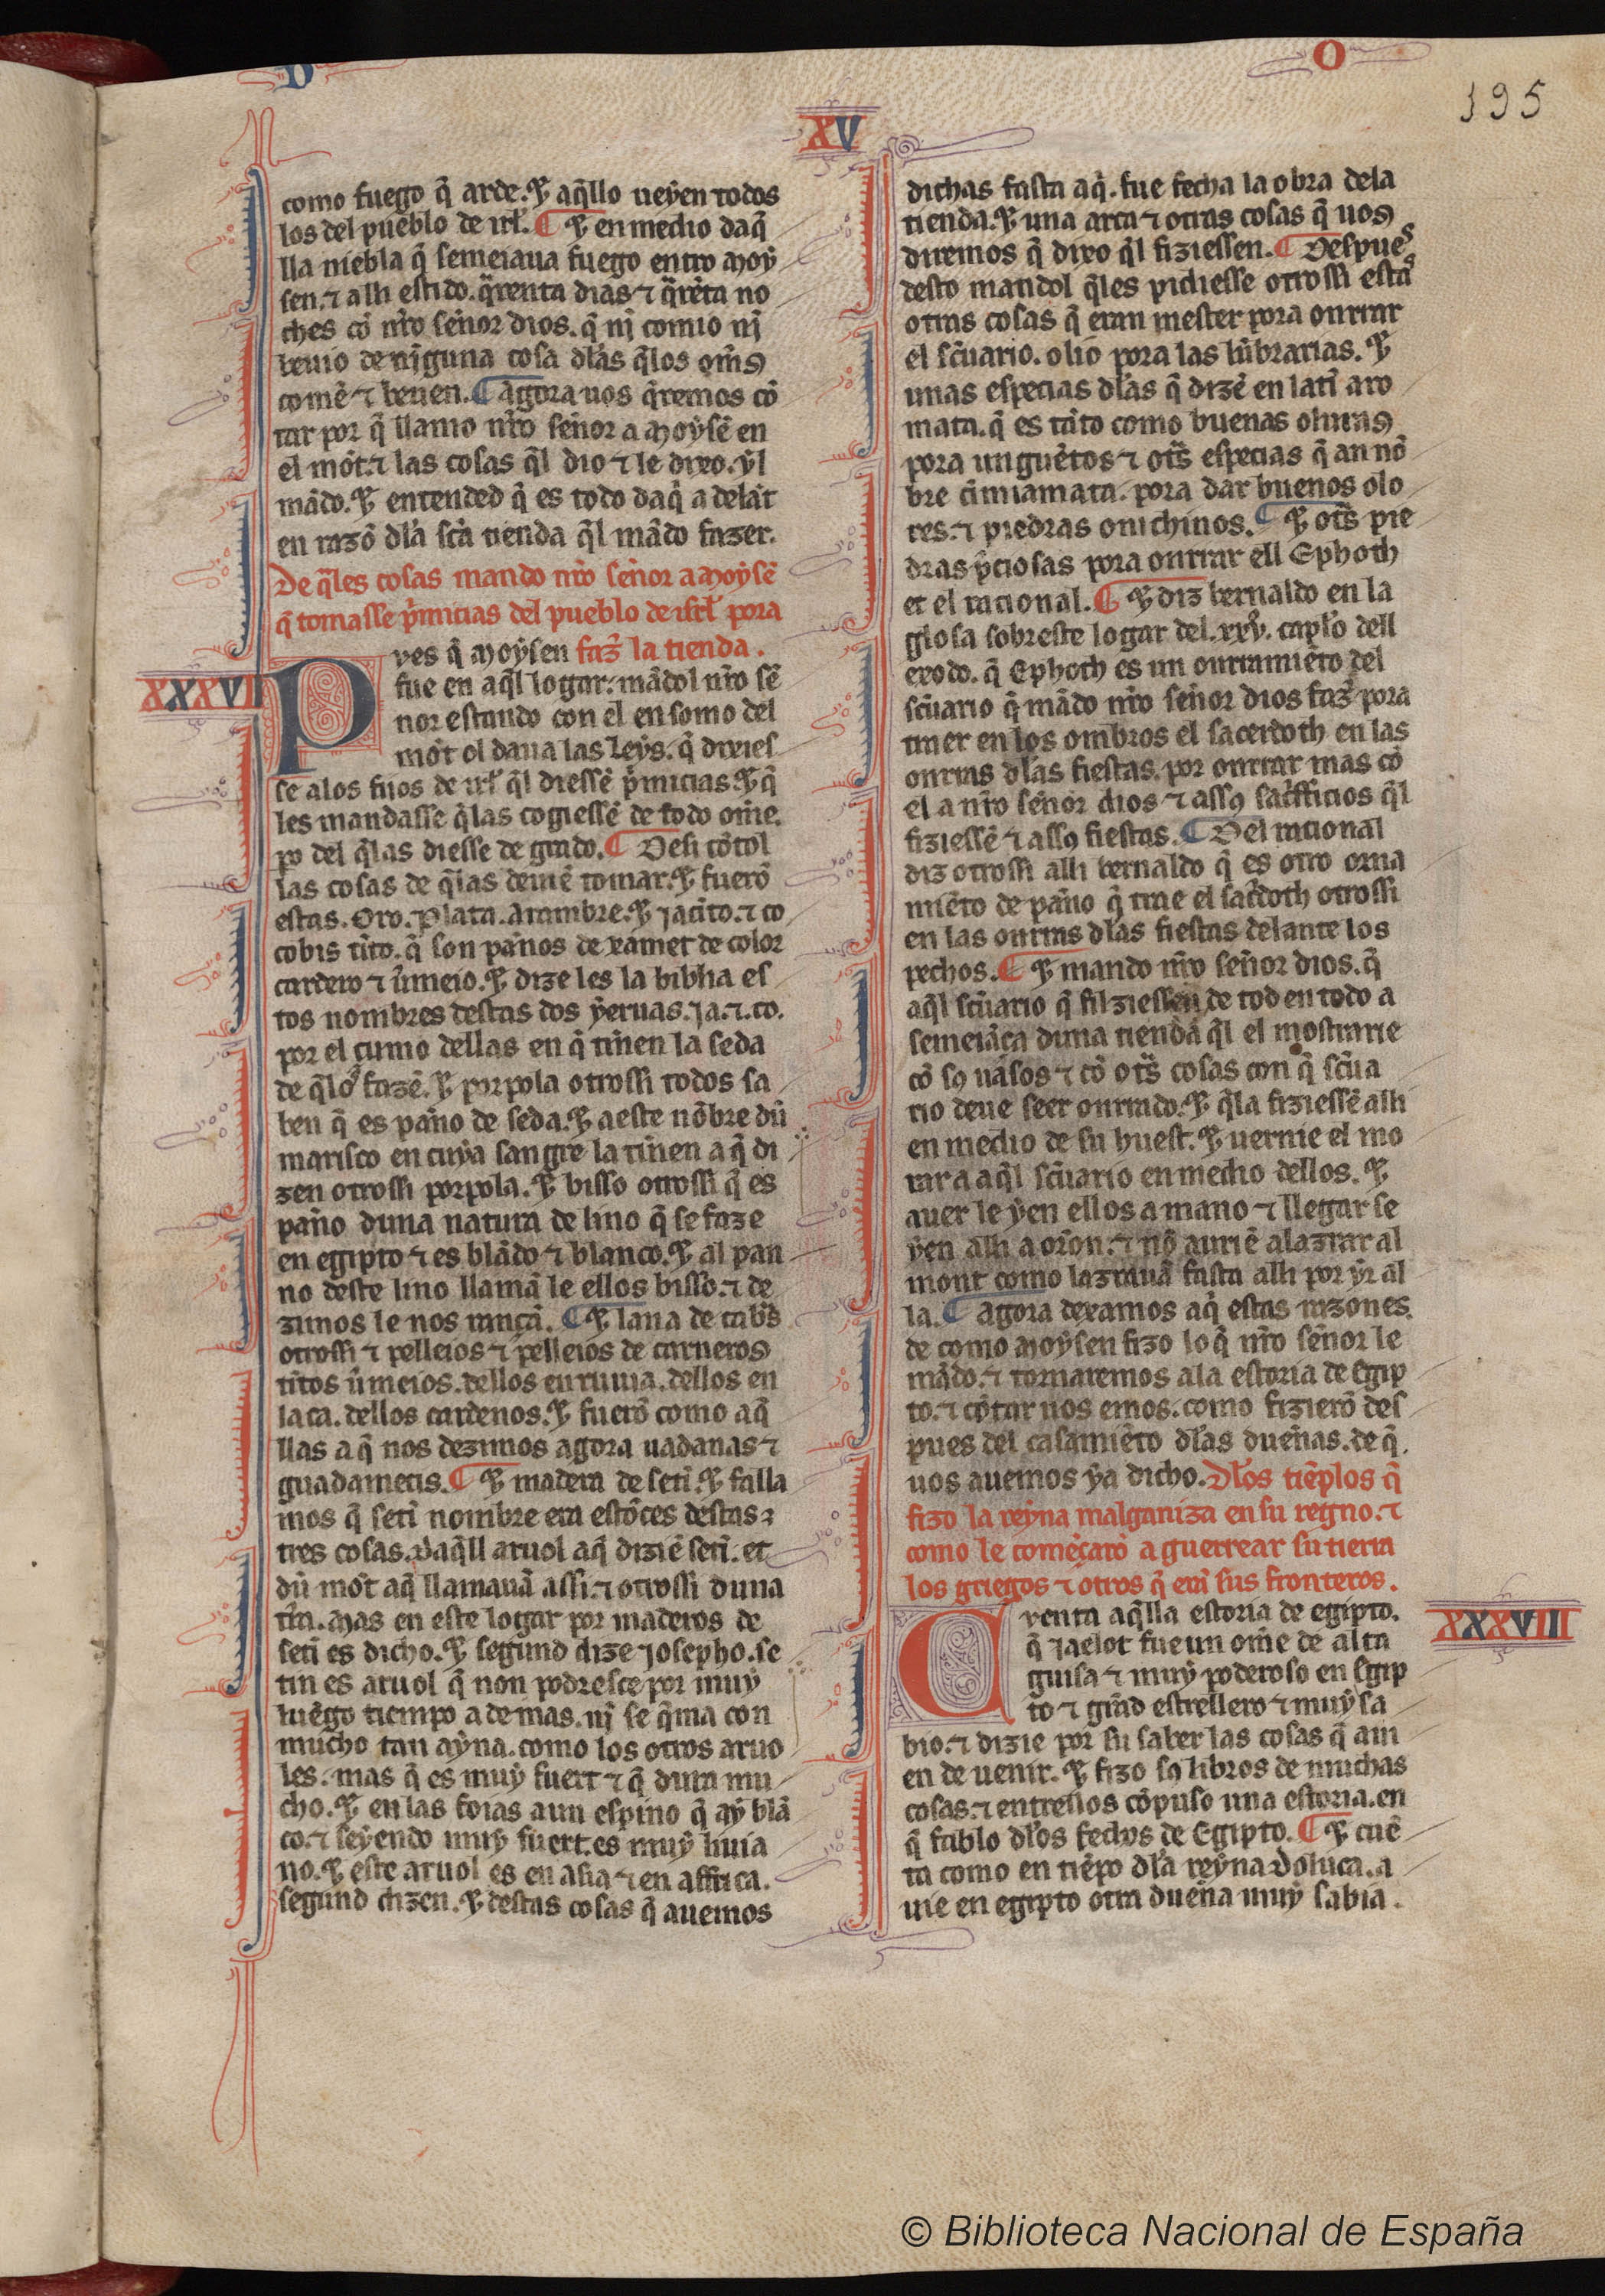 D
O
195
XV
como fuego q̃ arde. ⁊ aq̃llo ueẏen todos
los del pueblo de irł. ¶ ⁊ en medio daq̃
lla niebla q̃ semeiaua fuego entro moẏ
sen. ⁊ alli estido. q̃renta dias ⁊ q̃rẽta no
ches cõ nr̃o sen̄or dios. q̃ nĩ comio nĩ
beuio de nĩguna cosa dłas q̃ los om̃s
comẽ ⁊ beuen. ¶ agora uos q̃remos cõ
tar por q̃ llamo nr̃o sen̄or a moẏsẽ en
el mõt. ⁊ las cosas q̃l dio ⁊ le dixo. ẏl
mãdo. ⁊ entended q̃ es todo daq̃ a delãt
en razõ dła sc̃a tienda q̃l mãdo fazer.
De q̃les cosas mando nr̃o sen̄or a moẏsẽ
q̃ tomasse p̃micias del pueblo de isrł pora
ves q̃ moẏsen faz̃ la tienda.
XXXVI
P
fue en aq̃l logar. mãdol nr̃o sẽ
nor estando con el en somo del
mõt ol daua las leẏs. q̃ dixies
se alos fijos de irł q̃l diessẽ p̃micias. ⁊ q̃
les mandasse q̃ las cogiessẽ de todo om̃e.
po del q̃ las diesse de grado. ¶ Desi cõtol
las cosas de q̃ las deuiẽ tomar. ⁊ fuerõ
estas. Oro. Plata. Arambre. ⁊ Jacĩto. ⁊ co
cobis tĩto. q̃ son pan̄os de xamet de color
cardeno ⁊ ũmeio. ⁊ dize les la biblia es
tos nombres destas dos ẏeruas. Ja. ⁊. co.
por el çumo dellas en q̃ tin̄en la seda
de q̃ los fazẽ. ⁊ porpola otrossi todos sa
ben q̃ es pan̄o de seda. ⁊ a este nõbre dũ
marisco en cuẏa sangre la tin̄en a q̃ di
zen otrossi porpola. ⁊ bisso otrossi q̃ es
pan̄o duna natura de lino q̃ se faze
en egipto ⁊ es blãdo ⁊ blanco. ⁊ al pan
no deste lino llamã le ellos bisso. ⁊ de
zimos le nos rançã. ¶ ⁊ lana de cab̃s
otrossi ⁊ pelleios ⁊ pelleios de carneros
tĩtos ũmeios. dellos en ruuia. dellos en
laca. dellos cardenos. ⁊ fuerõ como aq̃
llas a q̃ nos dezimos agora uadanas ⁊
guadamecis. ¶ ⁊ madera de setĩ. ⁊ falla
mos q̃ setĩ nombre era estõces destas
tres cosas. daq̃ll aruol aq̃ diziẽ setĩ. et
dũ mõt aq̃ llamauã assi. ⁊ otrossi duna
tr̃ra. mas en este logar por maderos de
setĩ es dicho. ⁊ segund dize josepho. se
tin es aruol q̃ non podresce por muẏ
luẽgo tiempo a demas. nĩ se q̃ma con
mucho tan aẏna. como los otros aruo
les. mas q̃ es muẏ fuert ⁊ q̃ dura mu
cho. ⁊ en las foias a un espino q̃ aẏ blã
co. ⁊ seẏendo muẏ fuert. es muẏ liuia
no. ⁊ este aruol es en asia ⁊ en affrica.
segund dizen. ⁊ destas cosas q̃ auemos
dichas fasta aq̃. fue fecha la obra dela
tienda. ⁊ una arca ⁊ otras cosas q̃ uos
diremos q̃ dixo q̃l fiziessen. ¶ Despues
desto mandol q̃les pidiesse otrossi estas
otras cosas q̃ eran mester pora onrrar
el sc̃uario. olio pora las lũbrarias. ⁊
unas especias dłas q̃ dizẽ en latĩ aro
mata. q̃ es tãto como buenas oluras
pora unguẽtos ⁊ otr̃s especias q̃ an nõ
bre timiamata. pora dar buenos olo
res. ⁊ piedras onichinos. ¶ ⁊ otr̃s pie
dras p̃ciosas pora onrrar ell Ephoth
et el racional. ¶ ⁊ diz bernaldo en la
glosa sobreste logar del. xxv̊. capl̃o dell
exodo. q̃ Ephoth es un onrramiẽto del
sc̃uario q̃ mãdo nr̃o sen̄or dios faz̃ pora
traer en los ombros el sacerdoth en las
onrras dłas fiestas. por onrrar mas cõ
el a nr̃o sen̄or dios ⁊ a ssꝯ sac̃fficios q̃l
fiziessẽ ⁊ a ssꝯ fiestas. ¶ Del racional
diz otrossi alli bernaldo q̃ es otro orna
miẽto de pan̄o q̃ trae el sac̃doth otrossi
en las onrras dłas fiestas delante los
pechos. ¶ ⁊ mando nr̃o sen̄or dios. q̃
aq̃l sc̃uario q̃ fiziessen de tod en todo a
semeiãça duna tienda q̃l el mostrarie
cõ sꝯ uasos ⁊ cõ otr̃s cosas con q̃ sc̃ua
rio deue seer onrrado. ⁊ q̃la fiziessẽ alli
en medio de su huest. ⁊ uernie el mo
rar a aq̃l sc̃uario en medio dellos. ⁊
auer le ẏen ellos a mano ⁊ llegar se
ẏen alli a orõn. ⁊ nõ auriẽ a lazrar al
mont como lazrauã fasta alli por ẏr al
la. ¶ Agora dexamos aq̃ estas razones.
de como moẏsen fizo lo q̃ nr̃o sen̄or le
mãdo. ⁊ tornaremos ala estoria de Egip
to. ⁊ cõtar uos emos. como fizierõ des
pues del casamiẽto dłas duen̄as. de q̃
uos auemos ẏa dicho. Dłos tiẽplos q̃
fizo la reẏna malganiza en su regno. ⁊
como le comẽçarõ a guerrear su tierra
los griegos ⁊ otros q̃ erã sus fronteros.
XXXVIII
C
venta aq̃lla estoria de egipto.
q̃ Jaelot fue un om̃e de alta
guisa ⁊ muẏ poderoso en Egip
to ⁊ grãd estrellero ⁊ muẏ sa
bio. ⁊ dizie por su saber las cosas q̃ auí
en de uenir. ⁊ fizo sꝯ libros de muchas
cosas. ⁊ entrellos cõpuso una estoria. en
q̃ fablo dłos fechos de Egipto. ¶ ⁊ cuẽ
ta como en tiẽpo dła reẏna Doluca. a
uie en egipto otra duen̄a muẏ sabia.
© Biblioteca Nacional de España